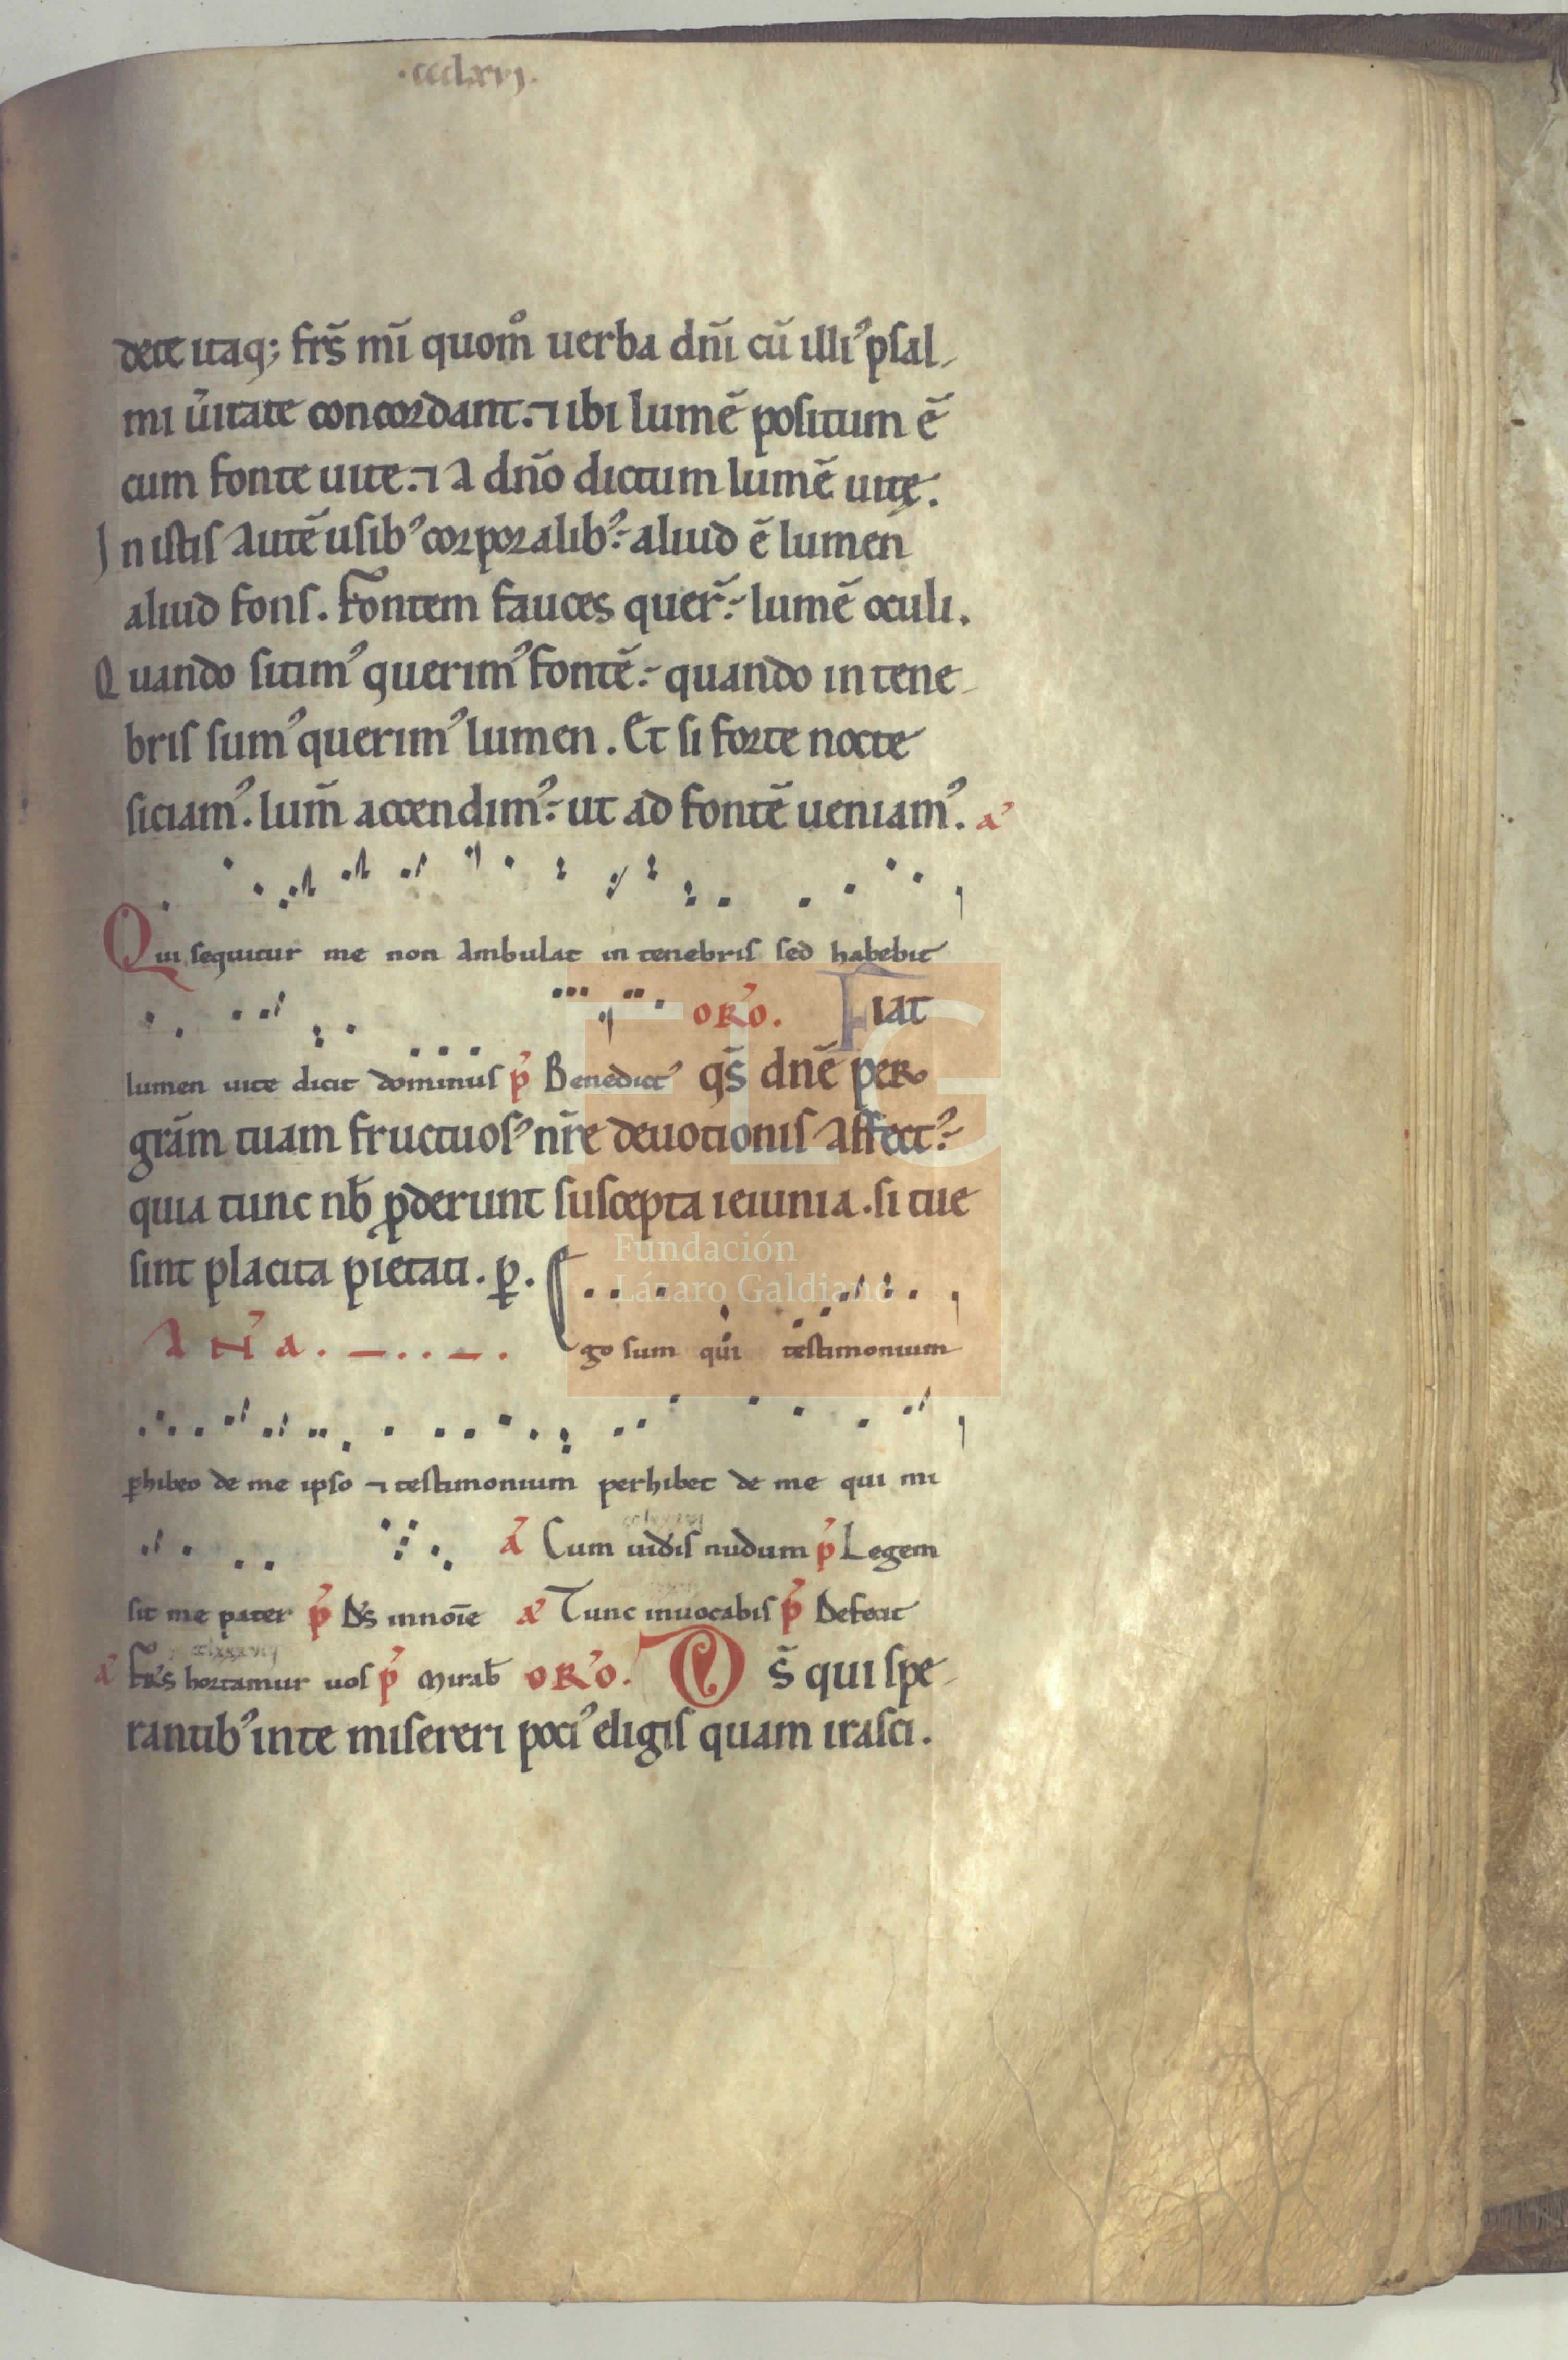 ·ccclxvj·
dete itaq; fr̄s mī quom̊ uerba dn̄i cū illiꝰ psal-
mi ūitate concordant. ⁊ ibi lumē positum ē
cum fonte uite. ⁊ a dn̄o dictum lumē uitę.
In istis autē usibꝰ corporalibꝰ: aliud ē lumen
aliud fons. Fontem fauces quer̄: lumē oculi.
Quando sitimꝰ querimꝰ fontē: quando in tene-
bris sumꝰ querimꝰ lumen. Et si forte nocte
siciamꝰ. lum̄ accendimꝰ: ut ad fontē ueniamꝰ. a᷎
Qui sequitur me non ambulat in tenebris sed habebit
oR̉o. Fiat
lumen uite dicit dominus p̉ Benedictꝰ qs̄ dn̄e per
gr̄am tuam fructuosꝰ nr̄e deuotionis affectꝰ:
quia tunc nb̄ ꝓderunt suscepta ieiunia. si tue
sint placita pietati. p̱.
Fundación
Lázaro Galdiano
AN̉a. Ego sum qui testimonium
p̱hibeo de me ipso ⁊ testimonium perhibet de me qui mi
a᷎ Cum uid̉is nudum p̉ Legem
sit me pater p̉ D̄s in noīe a᷎ Tunc inuocabis p̉ Defecit
a᷎ Fr̄s hortamur uos p̉ Mirab̄ oR̉o. Ds̄ qui spe-
rantibꝰ in te misereri pociꝰ eligis quam irasci.